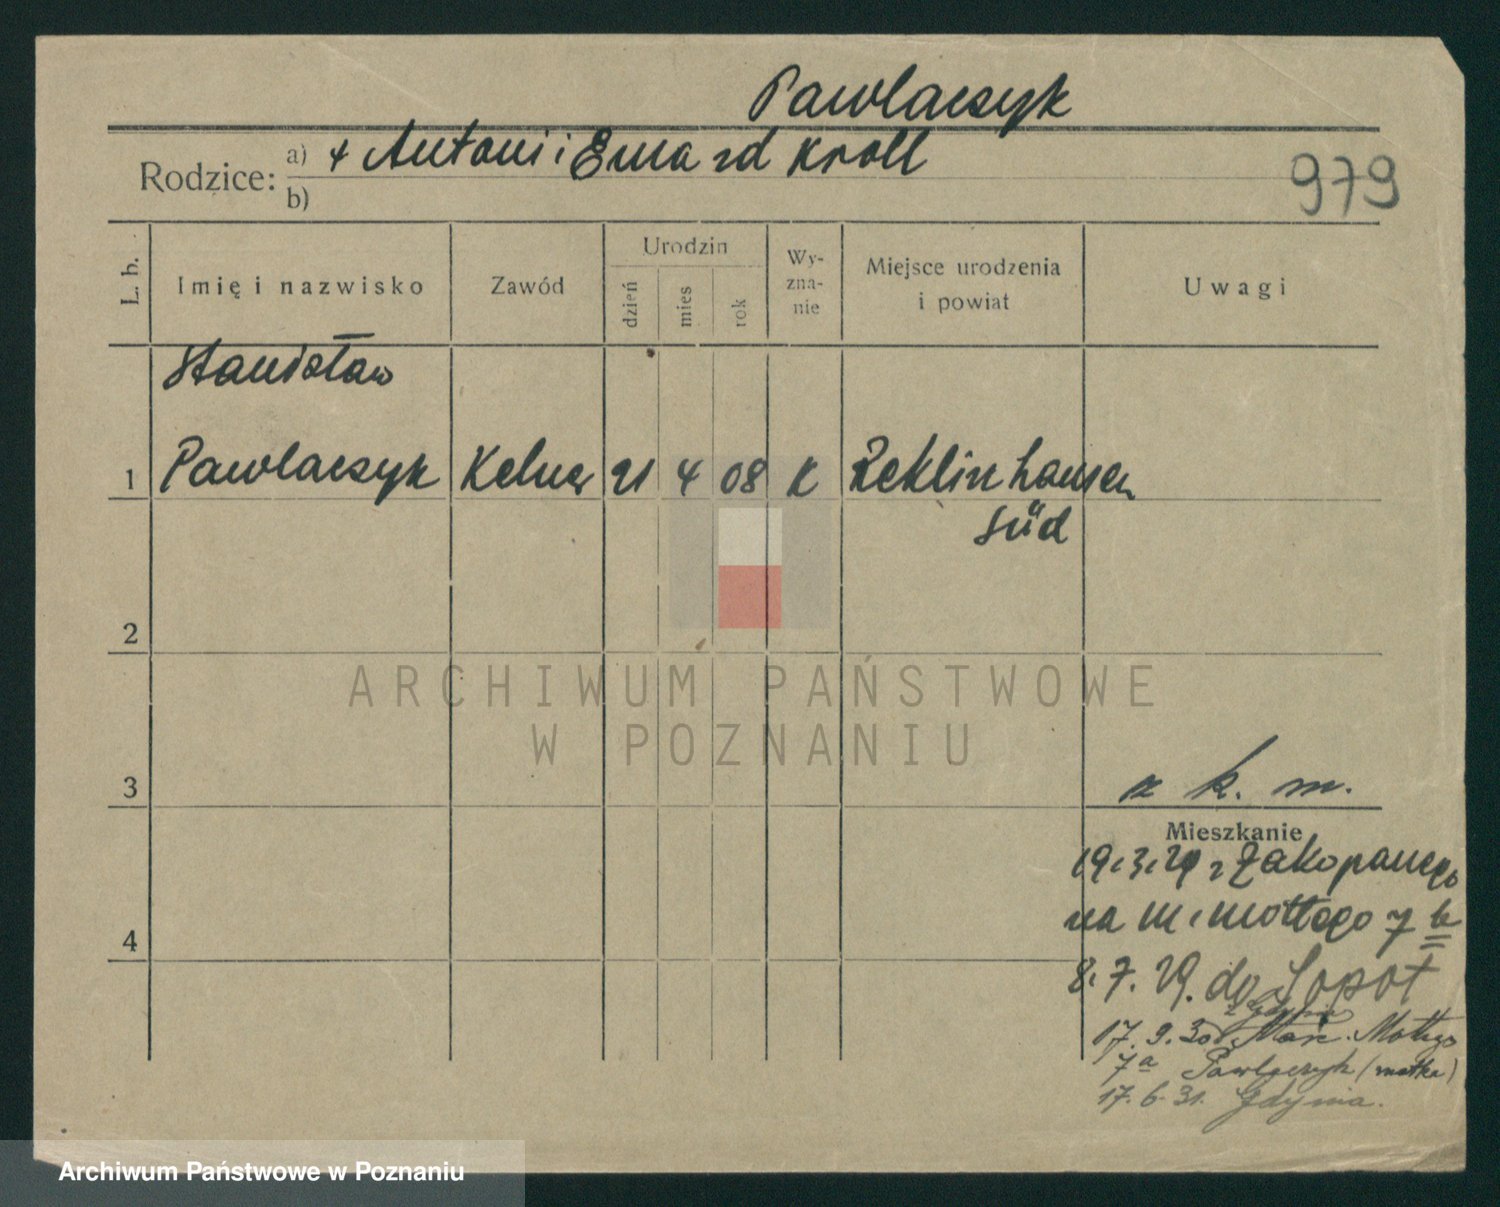 Pawlaczyk
Rodzice: a) + Antoni i Ema zd Kroll
b)
979
L. b. Imię i nazwisko Zawód Urodzin dzień mies rok Wy-zna-nie Miejsce urodzenia i powiat Uwagi
Stanisław
1 Pawlaczyk Kelner 21 4 08 K Reklinhausen
Süd
2
ARCHIWUM PAŃSTWOWE
W POZNANIU
3
k. m.
Mieszkanie
19.3.29 z Zakopanego
na M. Mottego 7 b
4
8.7.29. do Sopot
z Gdyni
17.9.30 Marc. Mottego
7a Pawlaczyk (matka)
17.6.31. Gdynia.
Archiwum Państwowe w Poznaniu